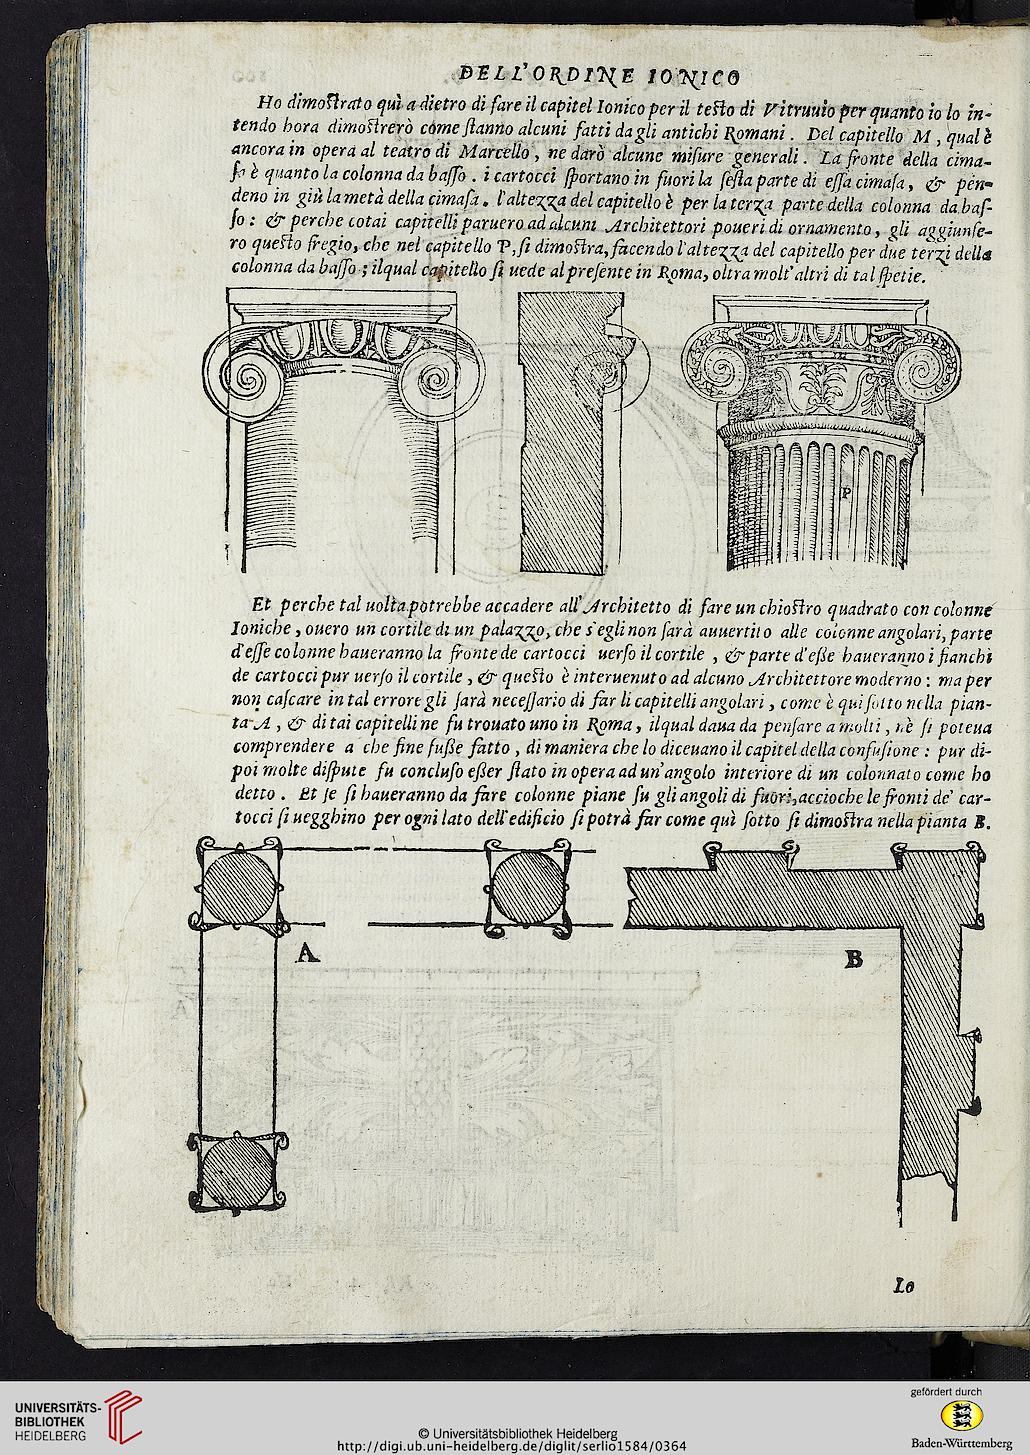 DELL'ORDINE IONICO
Ho dimoſtrato quì a dietro di fare il capitel Ionico per il teſto di Vitruuio per quanto io lo in-
tendo hora dimoſtrerò come ſtanno alcuni fatti da gli antichi Romani. Del capitello M, qual è
ancora in opera al teatro di Marcello, ne darò alcune miſure generali. La fronte della cima-
ſa è quanto la colonna da baſſo. i cartocci ſportano in fuori la ſeſta parte di eſſa cimaſa, & pen-
deno in giù la metà della cimaſa. l'altezza del capitello è per la terza parte della colonna da baſ-
ſo: & perche cotai capitelli paruero ad alcuni Architettori poueri di ornamento, gli aggiunſe-
ro queſto fregio, che nel capitello P, ſi dimoſtra, facendo l'altezza del capitello per due terzi della
colonna da baſſo; ilqual capitello ſi uede al preſente in Roma, oltra molt'altri di tal ſpetie.
P
Et perche tal uolta potrebbe accadere all'Architetto di fare un chioſtro quadrato con colonne
Ioniche, ouero un cortile di un palazzo, che s'egli non ſarà auuertito alle colonne angolari, parte
d'eſſe colonne haueranno la fronte de cartocci uerſo il cortile, & parte d'eſſe haueranno i fianchi
de cartocci pur uerſo il cortile, & queſto è interuenuto ad alcuno Architettore moderno: ma per
non caſcare in tal errore gli ſarà neceſſario di far li capitelli angolari, come è qui ſotto nella pian-
ta A, & di tai capitelli ne fu trouato uno in Roma, ilqual daua da penſare a molti, nè ſi poteua
comprendere a che fine fuſſe fatto, di maniera che lo diceuano il capitel della confuſione: pur di-
poi molte diſpute fu concluſo eſſer ſtato in opera ad un'angolo interiore di un colonnato come ho
detto. Et ſe ſi haueranno da fare colonne piane ſu gli angoli di fuori, accioche le fronti de' car-
tocci ſi uegghino per ogni lato dell'edificio ſi potrà far come quì ſotto ſi dimoſtra nella pianta B.
A
B
Lo
UNIVERSITÄTS-
BIBLIOTHEK
HEIDELBERG
© Universitätsbibliothek Heidelberg
http://digi.ub.uni-heidelberg.de/diglit/serlio1584/0364
gefördert durch
Baden-Württemberg